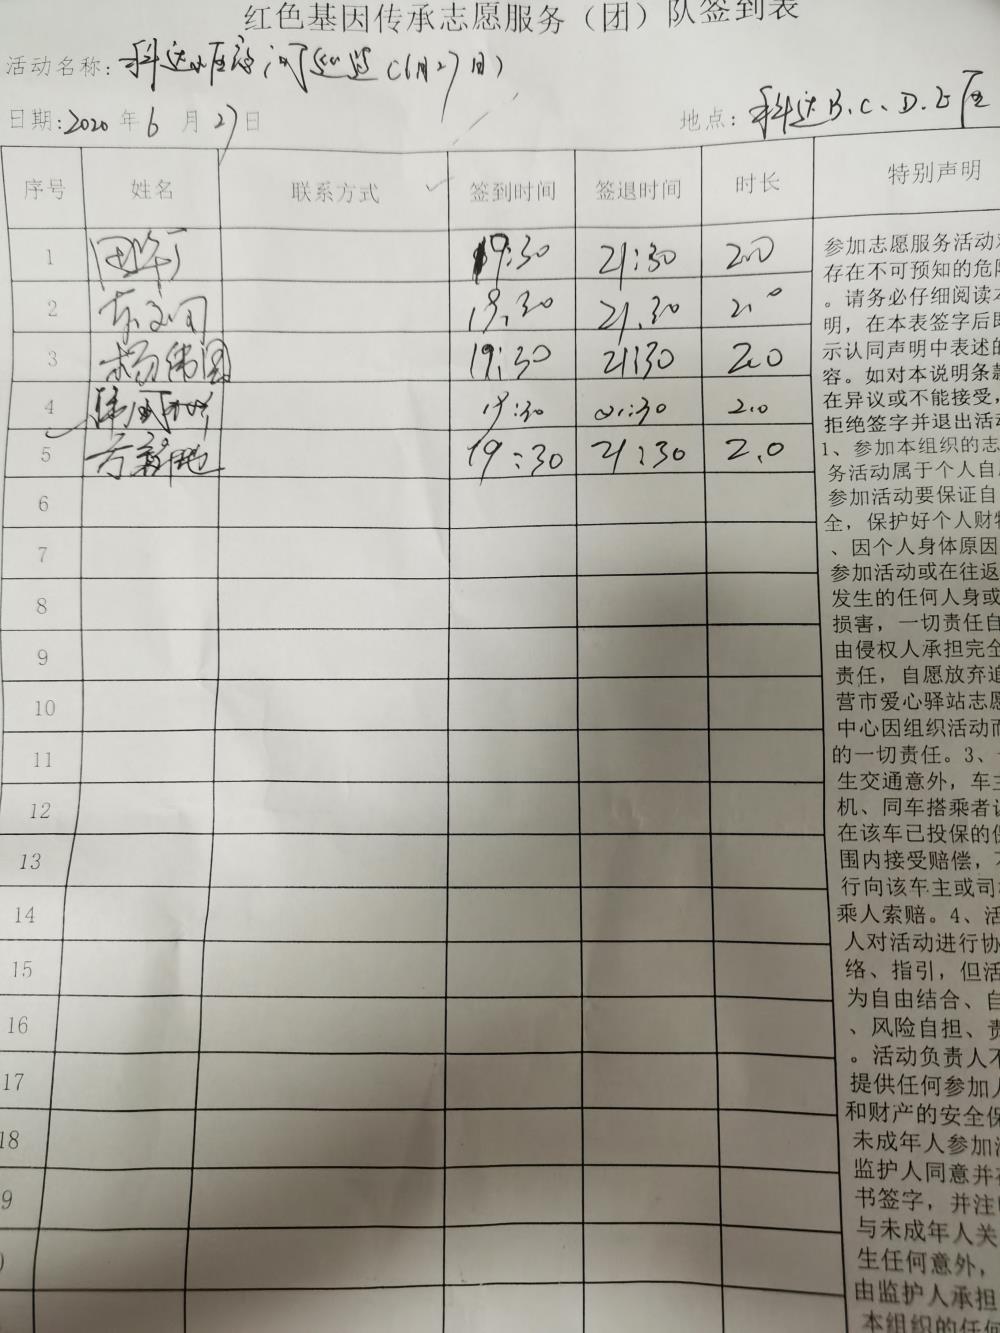 红色基因传承志愿服务（团）队签到表
活动名称：科达小区夜间巡逻（6月27日）
日期：2020年6月27日 地点：科达B.C.D.E区
序号 姓名 联系方式 签到时间 签退时间 时长 特别声明
1 19:30 21:30 2.0
2 19:30 21:30 2.0
3 杨伟国 19:30 21:30 2.0
4 19:30 21:30 2.0
5 19:30 21:30 2.0
6
7
8
9
10
11
12
13
14
15
16
17
18
9
参加志愿服务活动
存在不可预知的危
。请务必仔细阅读本
明，在本表签字后即
示认同声明中表述的
容。如对本说明条款
在异议或不能接受，
拒绝签字并退出活
1、参加本组织的志
务活动属于个人自
参加活动要保证自
全，保护好个人财
、因个人身体原因
参加活动或在往返
发生的任何人身或
损害，一切责任自
由侵权人承担完全
责任，自愿放弃追
营市爱心驿站志愿
中心因组织活动而
的一切责任。3、
生交通意外，车主
机、同车搭乘者
在该车已投保的
围内接受赔偿，不
行向该车主或司
乘人索赔。4、活
人对活动进行协
络、指引，但活
为自由结合、自
、风险自担、责
。活动负责人不
提供任何参加人
和财产的安全保
未成年人参加
监护人同意并
书签字，并注
与未成年人关
生任何意外，
由监护人承担
本组织的任何